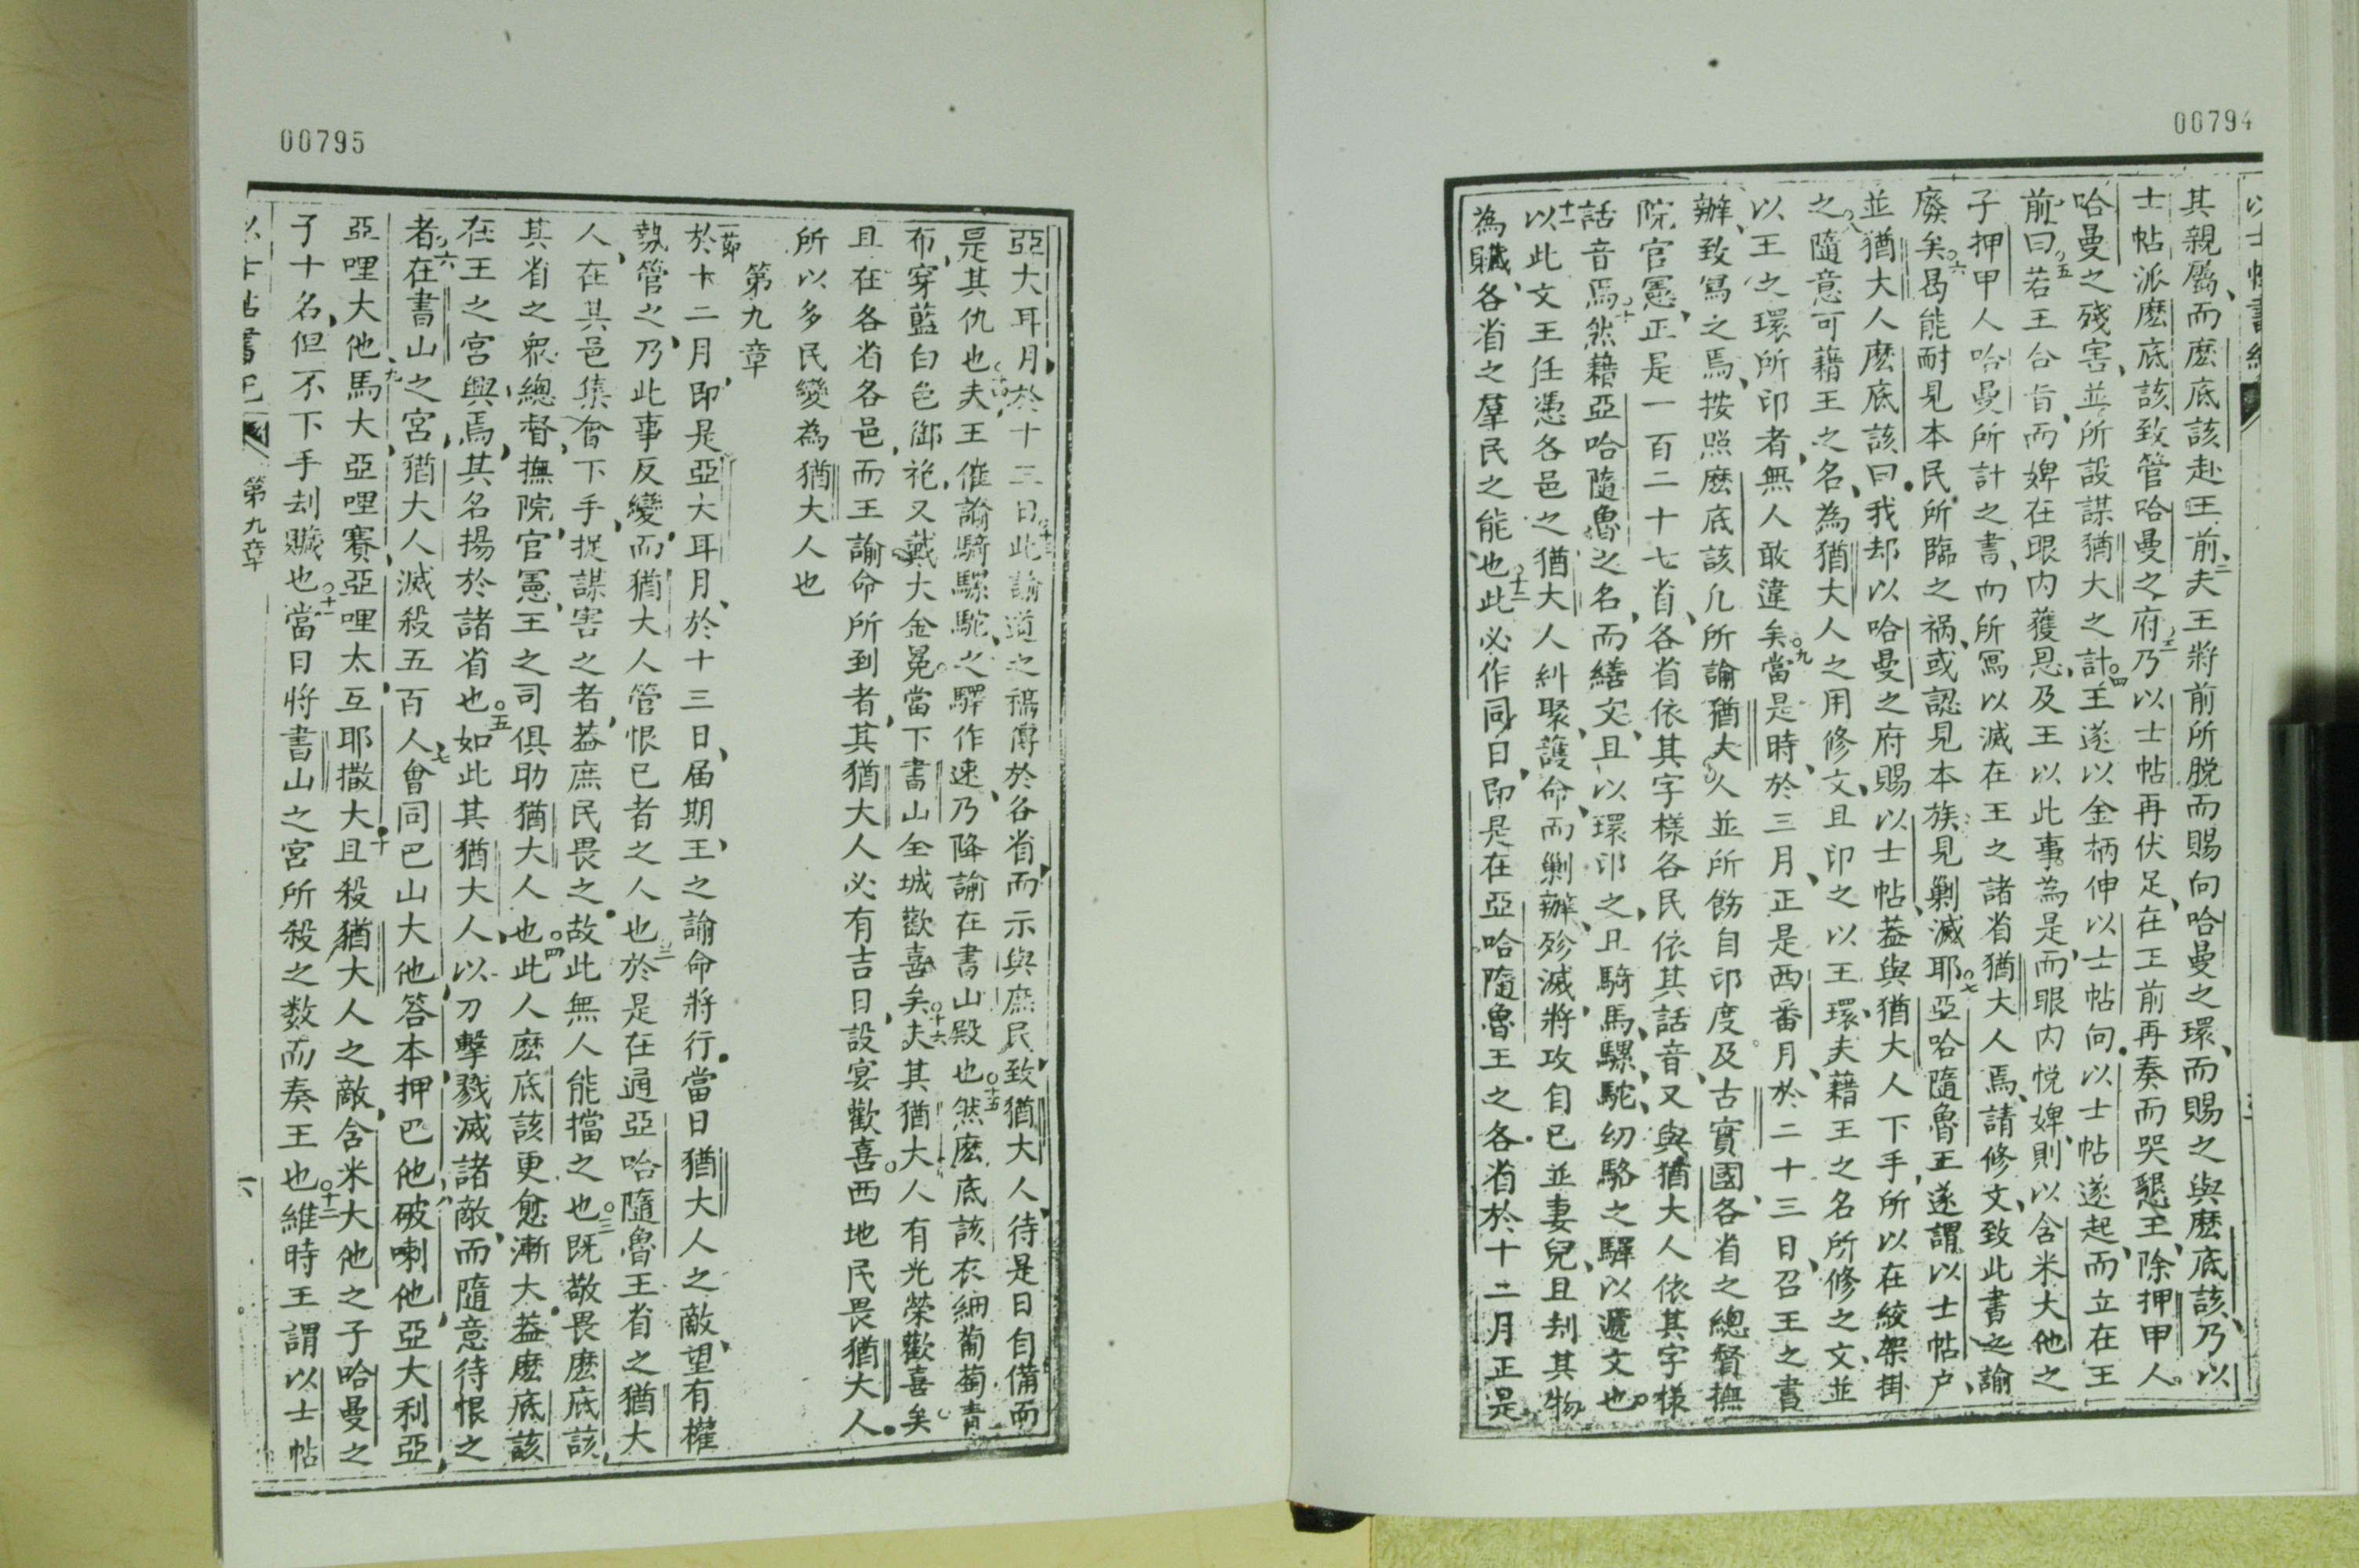 00794
其親屬而麽底該赴王前二夫王將前所脫而賜向哈曼之環而賜之與麽底該乃以
士帖派麽底該致管哈曼之府三乃以士帖再伏足在王前再奏而哭懇王除押甲人
哈曼之殘害並所設謀猶大之計四王遂以金柄伸以士帖向以士帖遂起而立在王
前曰五若王合旨而婢在眼内獲恩及王以此事為是而眼内悅婢則以含米大他之
子押甲人哈曼所計之書而所寫以滅在王之諸省猶大人焉請修文致此書之諭
廢矣六曷能耐見本民所臨之禍或認見本族見剿滅耶七亞哈隨魯王遂謂以士帖户
並猶大人麽底該曰我却以哈曼之府賜以士帖葢與猶大人下手所以在絞架掛
之八隨意可藉王之名為猶大人之用修文且印之以王環夫藉王之名所修之文並
以王之環所印者無人敢違矣九當是時於三月正是西番月於二十三日召王之書
辦致寫之焉按照麽底該凡所諭猶大人並所飭自印度及古實國各省之總督撫
院官憲正是一百二十七省各省依其字樣各民依其話音又與猶大人依其字樣
話音焉十然藉亞哈隨魯之名而繕文且以環印之且騎馬騾駝幼駱之驛以遞文也
十一以此文王任憑各邑之猶大人糾聚護命而剿辦殄滅將攻自已並妻兒且刦其物
為贓各省之羣民之能也十二此必作同日即是在亞哈隨魯王之各省於十二月正是
00795
亞大耳月於十三日十三此諭道之稿傳於各省而示與庶民致猶大人待是日自備而
是其仇也十四夫王催諭騎騾駝之驛作速乃降諭在書山殿也十五然麽底該衣細葡萄青
布穿藍白色御袍又戴大金冕當下書山全城歡喜矣十六夫其猶大人有光榮歡喜矣
且在各省各邑而王諭命所到者其猶大人必有吉日設宴歡喜西地民畏猶大人
所以多民變為猶大人也
第九章
一節於十二月即是亞大耳月於十三日届期王之諭命將行當日猶大人之敵望有權
勢管之乃此事反變而猶大人管恨已者之人也二於是在通亞哈隨魯王省之猶大
人在其邑集會下手捉謀害之者葢庶民畏之故此無人能擋之也三既敬畏麽底該
其省之衆總督撫院官憲王之司俱助猶大人也四此人麽底該更愈漸大葢麽底該
在王之宮興焉其名揚於諸省也五如此其猶大人以刀擊戮滅諸敵而隨意待恨之
者六在書山之宮猶大人滅殺五百人七會同巴山大他答本押巴他八破喇他亞大利亞
亞哩大他馬大九亞哩賽亞哩太亙耶撒大十且殺猶大人之敵含米大他之子哈曼之
子十名但不下手刦贓也十一當日將書山之宮所殺之数而奏王也十二維時王謂以士帖
第九章